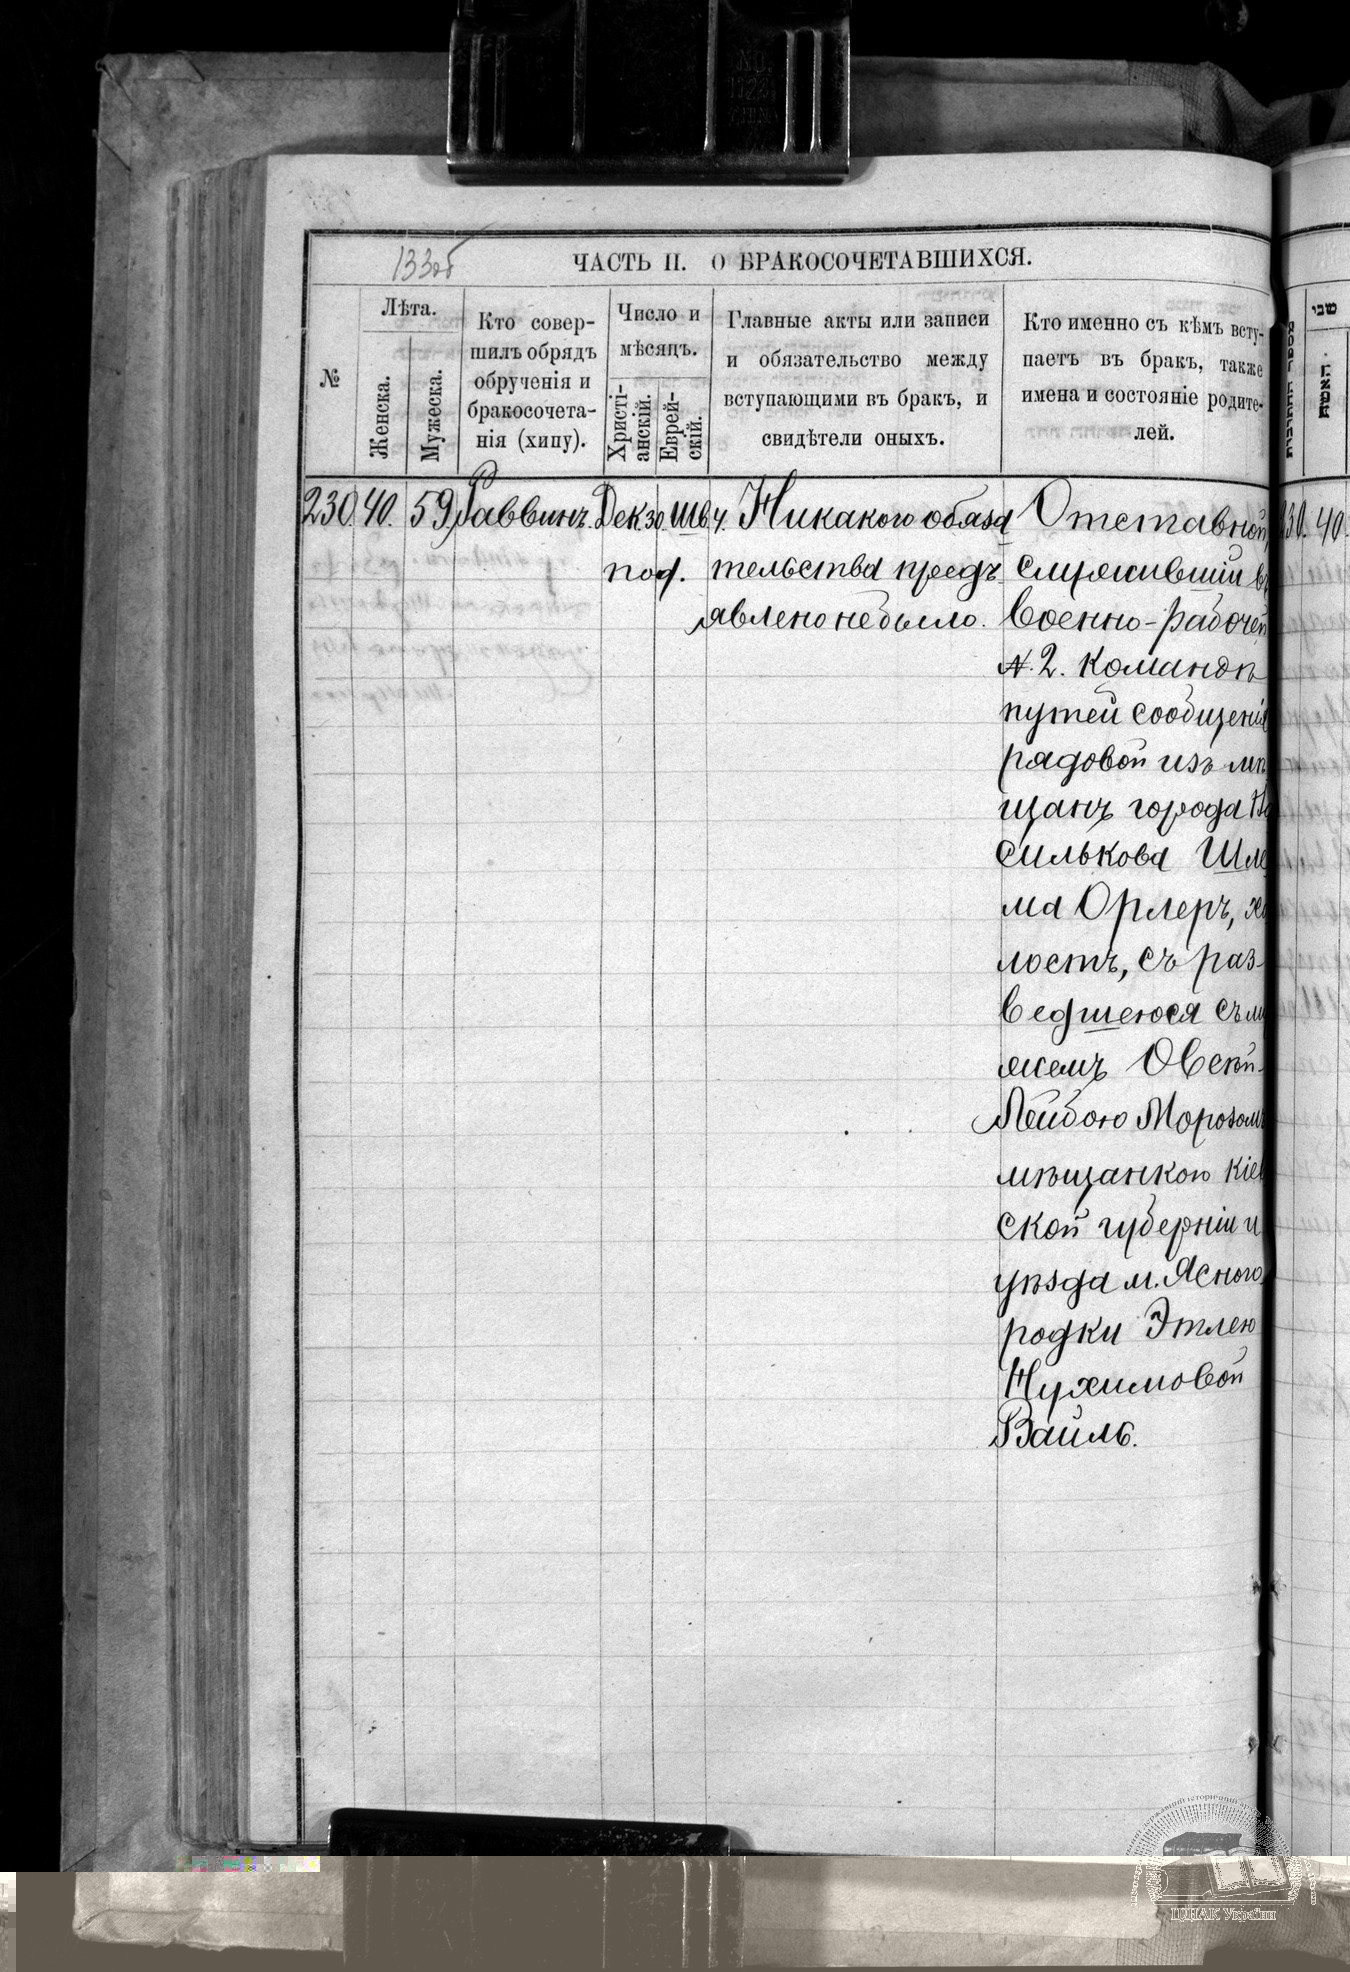 133об
ЧАСТЬ II. О БРАКОСОЧЕТАВШИХСЯ.
№
Лѣта.
Женска.
Мужеска.
Кто совер-
шилъ обрядъ
обрученія и
бракосочета-
нія (хипу).
Число и
мѣсяцъ.
Христі-
анскій.
Еврей-
скій.
Главные акты или записи
и обязательство между
вступающими въ бракъ, и
свидѣтели оныхъ.
Кто именно съ кѣмъ всту-
паетъ въ бракъ, также
имена и состояніе родите-
лей.
230. 40. 59 Раввинъ. Дек. 30. Шв. 4.
Никакого обяза
тельства предъ
явлено не было.
Отставной
служившій въ
Военно-рабочей
№ 2. Командѣ
путей сообщенія
рядовой изъ мѣ
щанъ города Ва
силькова Шле
ма Орлеръ, хо
лостъ, съ раз-
ведшеюся съ му
жемъ Овсѣй-
Лейбою Морозомъ
мѣщанкою Кіев
ской губерніи и
уѣзда м. Ясного
родки Этлею
Нухимовой
Вайль.
שני
האשה
230. 40.
ЦДІАК України